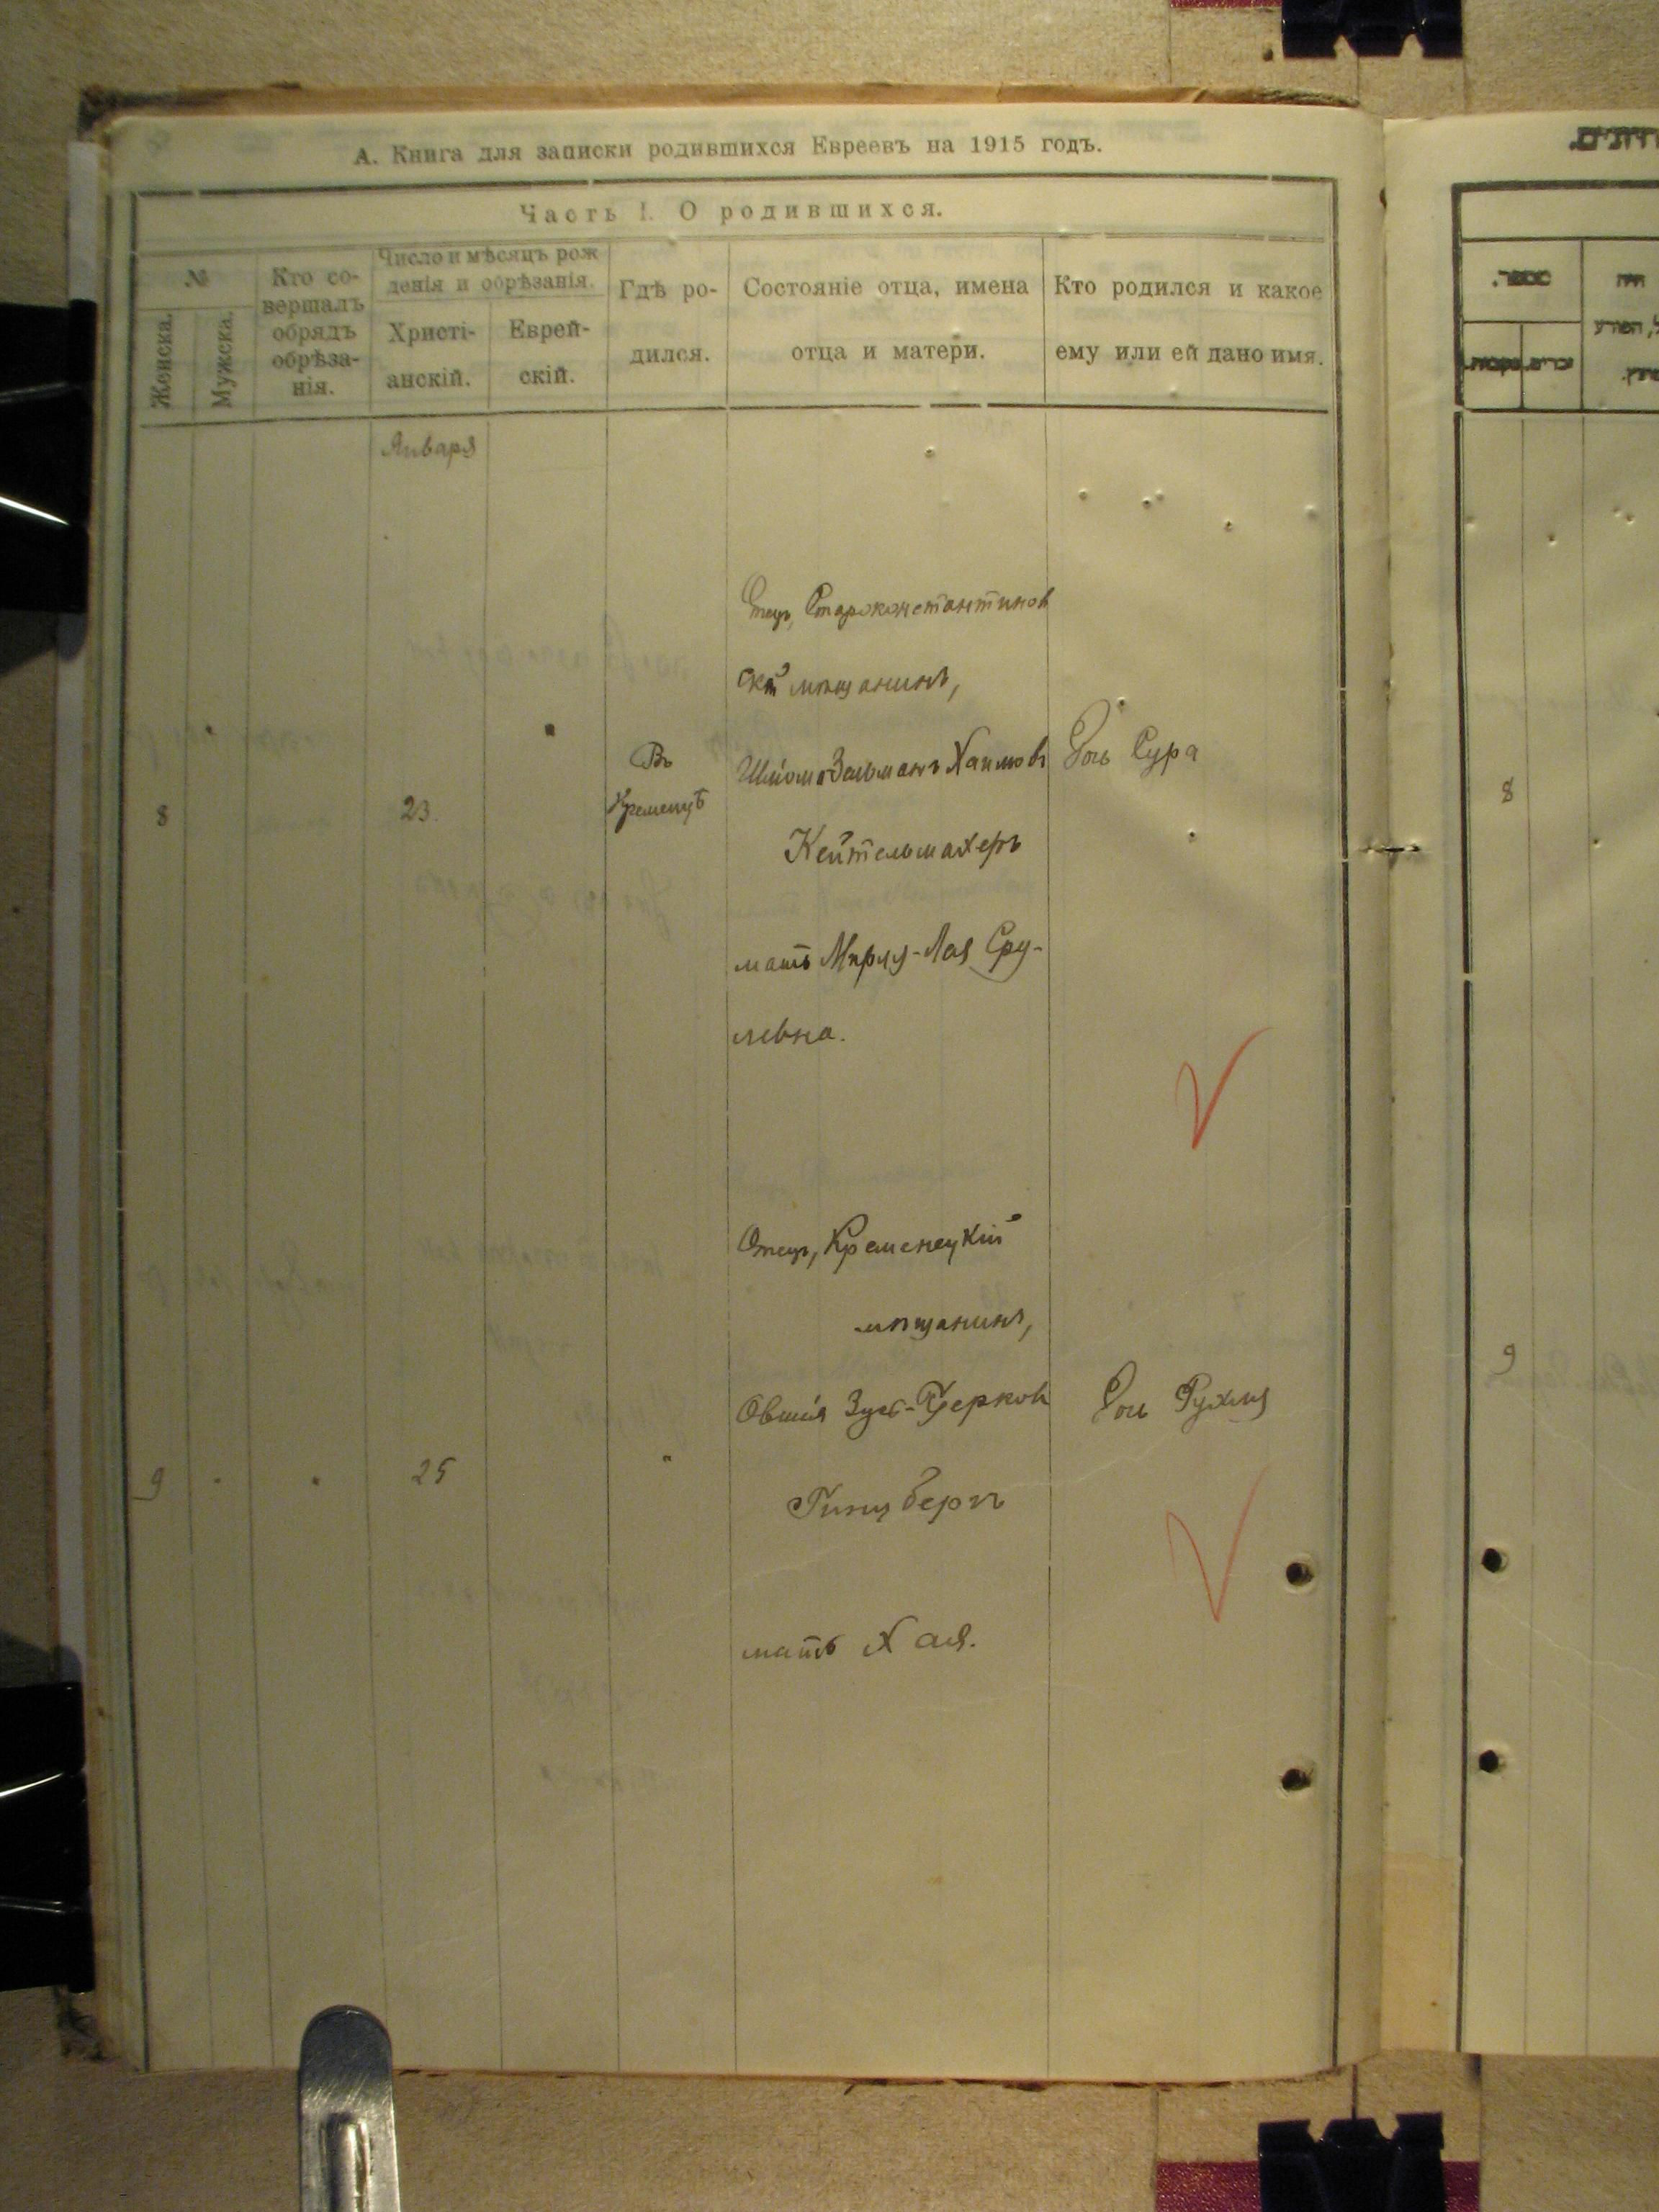 А. Книга для записки родившихся Евреевъ на 1915 годъ.
Часть I. О родившихся.
№
Женска.
Мужска.
Кто со-
вершалъ
обрядъ
обрѣза-
нія.
Число и мѣсяцъ рож
денія и обрѣзанія.
Христі-
анскій.
Еврей-
скій.
Гдѣ ро-
дился.
Состояніе отца, имена
отца и матери.
Кто родился и какое
ему или ей дано имя.
Января
8
23.
Въ
Кременцѣ
Отецъ, Староконстантинов
скій мѣщанинъ,
Зельманъ Хаимовъ
Кейтельмахеръ
мать Лая Сру-
левна.
Дочь Сура
9
25
"
Отецъ, Кременецкій
мѣщанинъ,
Овшія Зусь-Герков
Гинцбергъ
мать Хая.
Дочь Рухля
מספר.
זכרים.
נקבות.
8
9